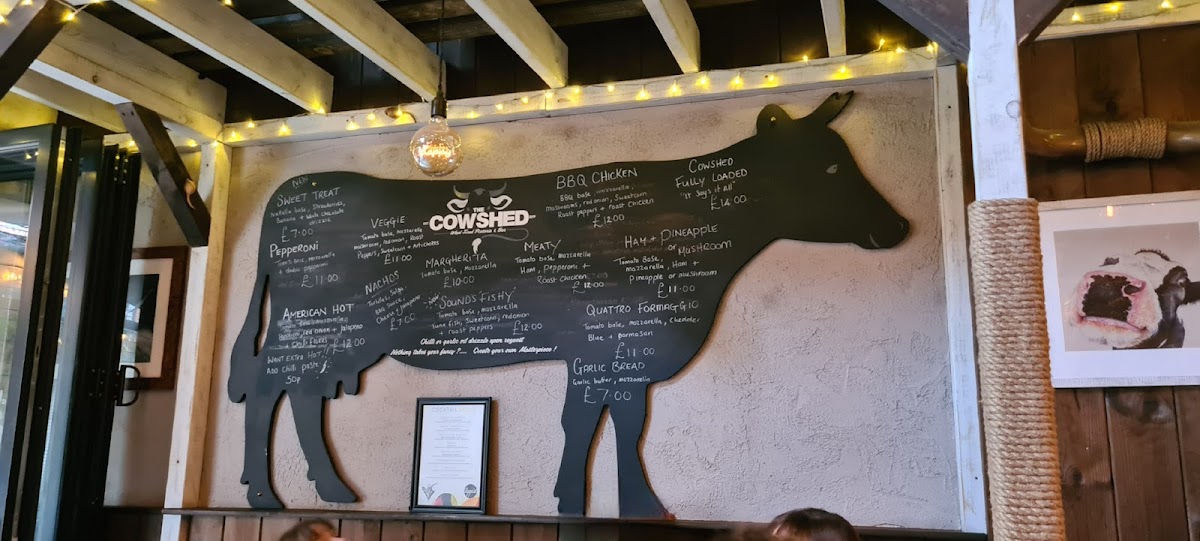 New
SWEET TREAT
Nutella base, Strawberries,
Banana + white chocolate
£7.00
PEPPERONI
Tomato base, mozzarella
+ double pepperoni
£11.00
AMERICAN HOT
red onion + Jalapeno
+ chilli flakes £12.00
WANT EXTRA HOT!!
ADD CHILLI PASTE
50p
VEGGIE
Tomato base, mozzarella
mushroom, redonion, Roast
Peppers, Sweetcorn + Artichokes
£11.00
NACHOS
Tortilla's, Salsa,
BBQ Sauce,
Cheese + Jalapeno
£7.00
THE
COWSHED
Wood Fired Pizzeria & Bar
MARGHERITTA
tomato base, mozzarella
£10.00
'SOUNDS 'FISHY'
Tomato base, mozzarella
Tuna fish, Sweetcorn, redonion
+ roast peppers £12.00
Chilli or garlic oil drizzle upon request
Nothing takes your fancy ?.... Create your own Masterpiece !
MEATY
Tomato base, mozzarella
Ham, Pepperoni +
Roast Chicken
£12.00
BBQ CHICKEN
BBQ base, mozzarella,
mushrooms, red onion, Sweetcorn
Roast peppers + roast chicken
£12.00
COWSHED
FULLY LOADED
"it says it all"
£14.00
HAM + PINEAPPLE
or MUSHROOM
Tomato Base,
mozzarella, Ham +
Pineapple or mushroom
£11.00
QUATTRO FORMAGGIO
Tomato base, mozzarella, Cheddar,
Blue + parmasan
£11.00
GARLIC BREAD
Garlic butter, mozzarella
£7.00